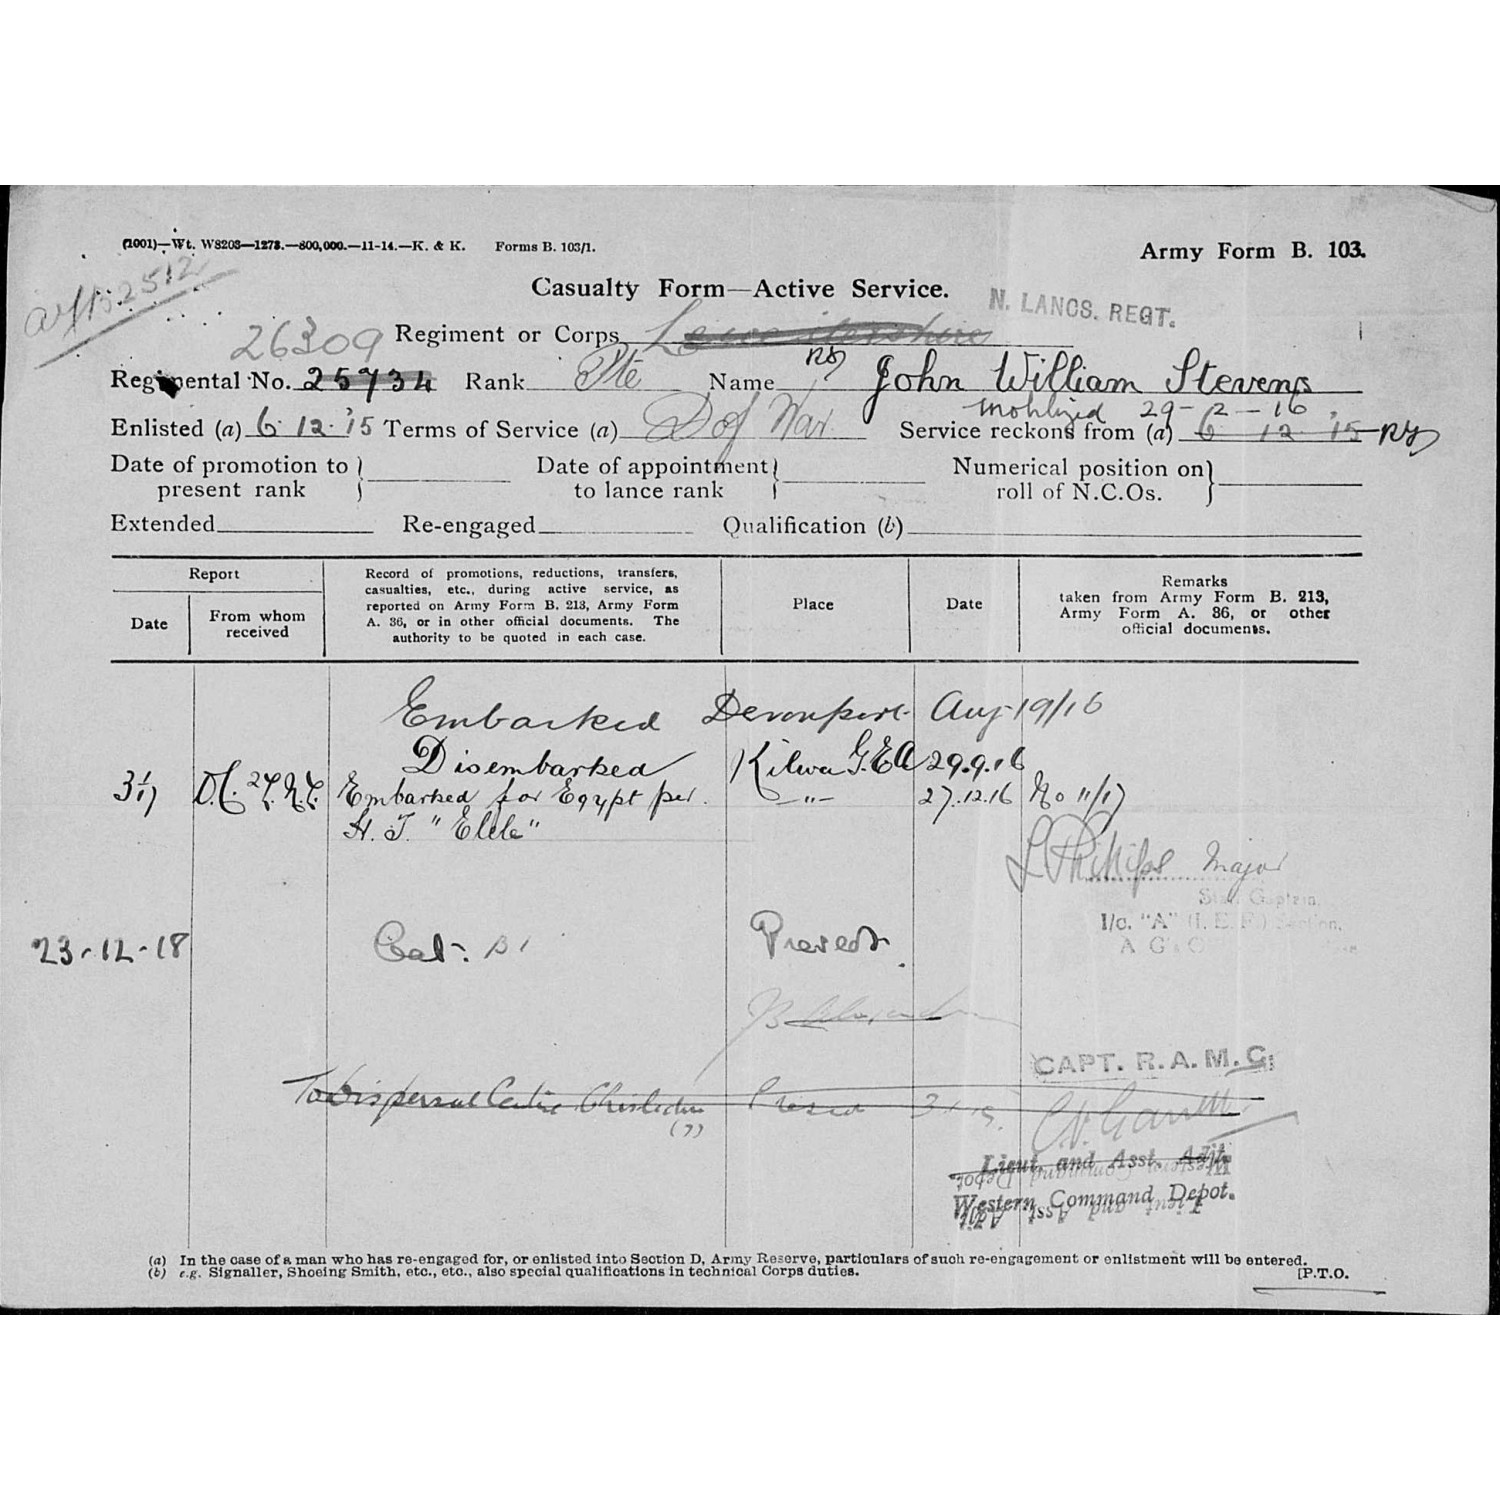 (1001)—Wt. W8203—1273.—800,000.—11-14.—K. & K. Forms B. 103/1.
Army Form B. 103.
Casualty Form—Active Service.
N. LANCS. REGT.
26309
Regiment or Corps Leicestershire
Regimental No. 25734 Rank Pte Name John William Stevens
mobilized 29-2-16
Enlisted (a) 6.12.'15 Terms of Service (a) D of War Service reckons from (a) 6 12 15
Date of promotion to present rank
Date of appointment to lance rank
Numerical position on roll of N.C.Os.
Extended Re-engaged Qualification (b)
Report
Date
From whom received
Record of promotions, reductions, transfers, casualties, etc., during active service, as reported on Army Form B. 213, Army Form A. 36, or in other official documents. The authority to be quoted in each case.
Place
Date
Remarks taken from Army Form B. 213, Army Form A. 36, or other official documents.
Embarked Devonport Aug 19/16
Disembarked Kilwa G.E.A 29.9.16
Embarked for Egypt per —"— 27.12.16 No 11/17
H. T. "Elele"
L Phillips Major
Staff Captain,
I/c. "A" (I. E. F.) Section,
23-12-18 Cat: B1 Prescot.
CAPT. R.A.M.C.
To Dispersal Centre Chisledon Prescot
(7)
Lieut. and Asst. Adjt.
Western Command Depot.
(a) In the case of a man who has re-engaged for, or enlisted into Section D, Army Reserve, particulars of such re-engagement or enlistment will be entered.
(b) e.g. Signaller, Shoeing Smith, etc., etc., also special qualifications in technical Corps duties.
[P.T.O.